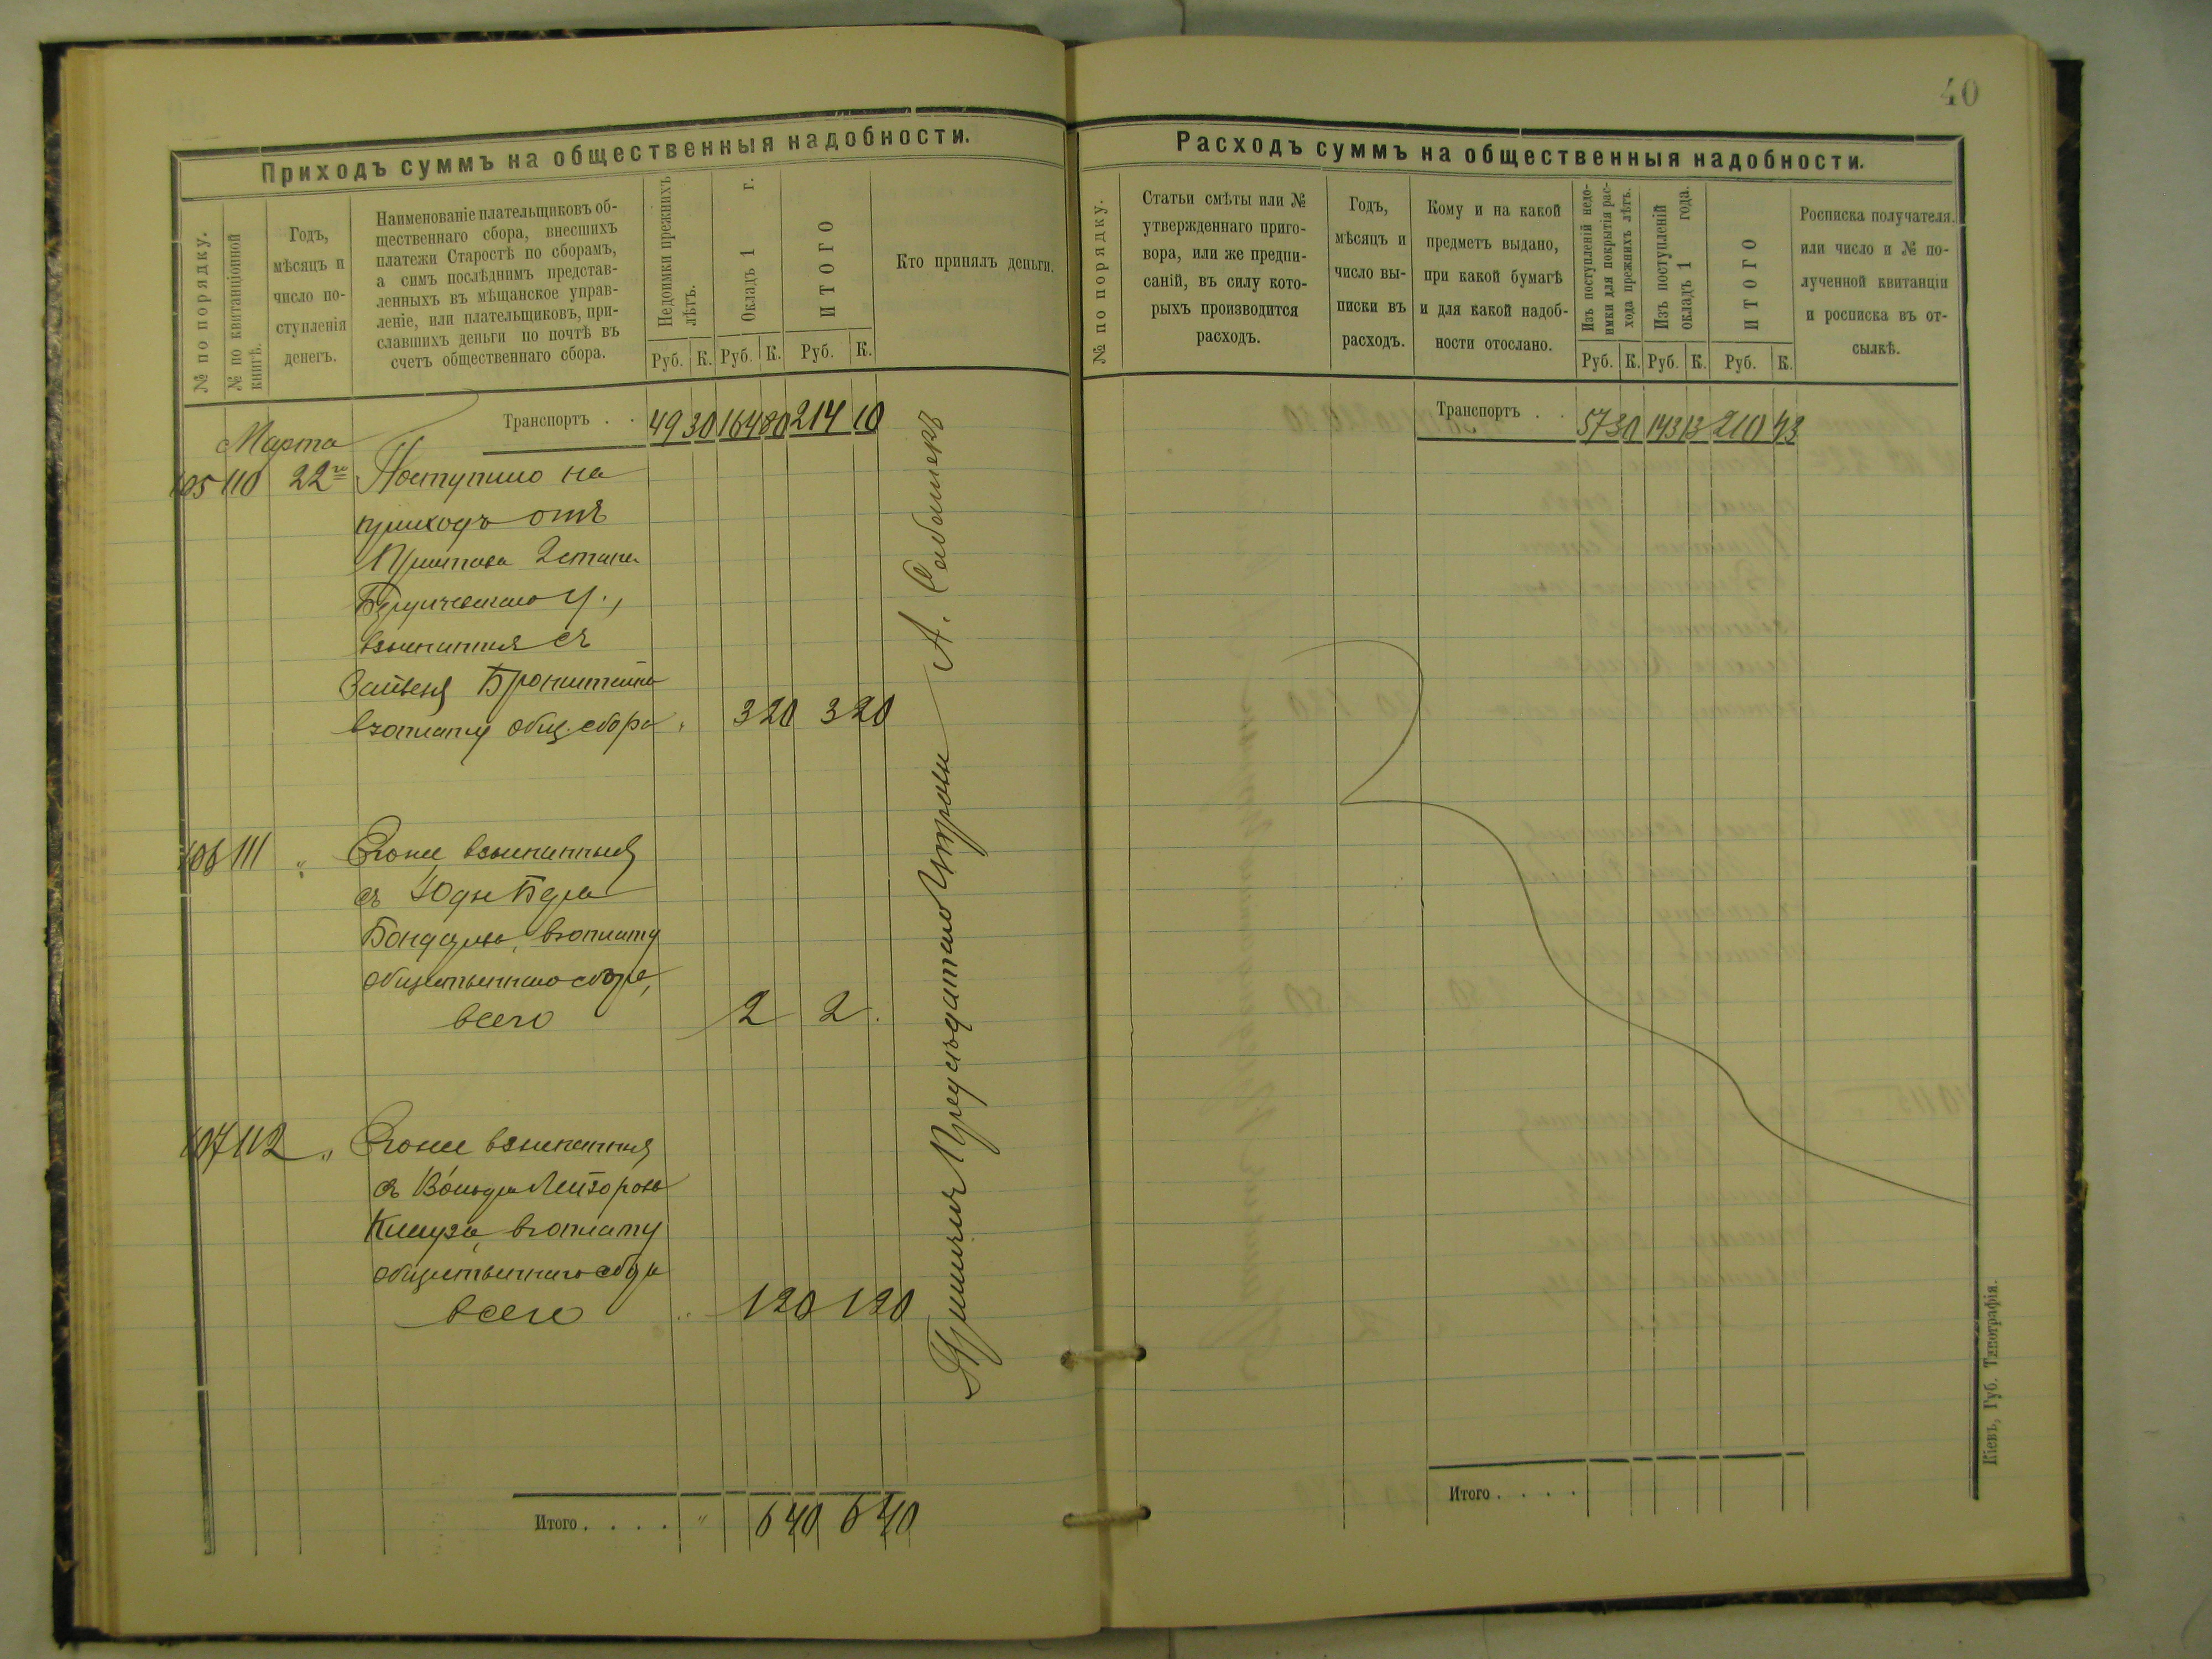 40
Приходъ суммъ на общественныя надобности.
№ по порядку.
№ по квитанціонной
книгѣ.
Годъ,
мѣсяцъ и
число по-
ступленія
денегъ.
Наименованіе плательщиковъ об-
щественнаго сбора, внесшихъ
платежи Старостѣ по сборамъ,
а симъ послѣднимъ представ-
ленныхъ въ мѣщанское управ-
леніе, или плательщиковъ, при-
славшихъ деньги по почтѣ въ
счетъ общественнаго сбора.
Недоимки прежнихъ
лѣтъ.
Окладъ 1 г.
ИТОГО
Кто принялъ деньги.
Руб. К. Руб. К. Руб. К.
Транспортъ . . 49 30 164 80 214 10
Марта
105 110 22го Поступило на
приходъ отъ
Пристава 2 стана
у.,
взысканныя съ
Бронштейна
въ уплату общ. сбора „ 3 20 3 20
106 111 „ Тоже взысканныя
съ
въ уплату
общественнаго сбора,
всего 2 2
107 112 „ Тоже взысканныя
съ
въ уплату
общественнаго сбора
всего „ 1 20 1 20
Итого . . . . „ 6 40 6 40
А.
Расходъ суммъ на общественныя надобности.
№ по порядку.
Статьи смѣты или №
утвержденнаго приго-
вора, или же предпи-
саній, въ силу кото-
рыхъ производится
расходъ.
Годъ,
мѣсяцъ и
число вы-
писки въ
расходъ.
Кому и на какой
предметъ выдано,
при какой бумагѣ
и для какой надоб-
ности отослано.
Изъ поступленій недо-
имки для покрытія рас-
хода прежнихъ лѣтъ.
Изъ поступленій
окладъ 1 года.
ИТОГО
Росписка получателя.
или число и № по-
лученной квитанціи
и росписка въ от-
сылкѣ.
Руб. К. Руб. К. Руб. К.
Транспортъ . . 57 30 143 13 210 43
Итого . . . .
Кіевъ, Губ. Типографія.